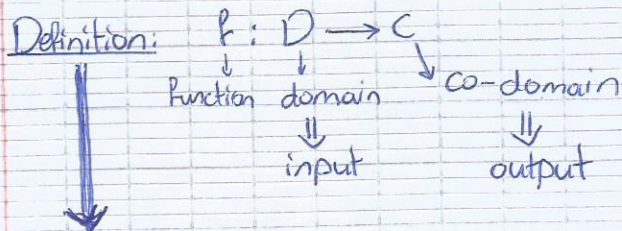 Definition: f : D → C
function domain co-domain
input output